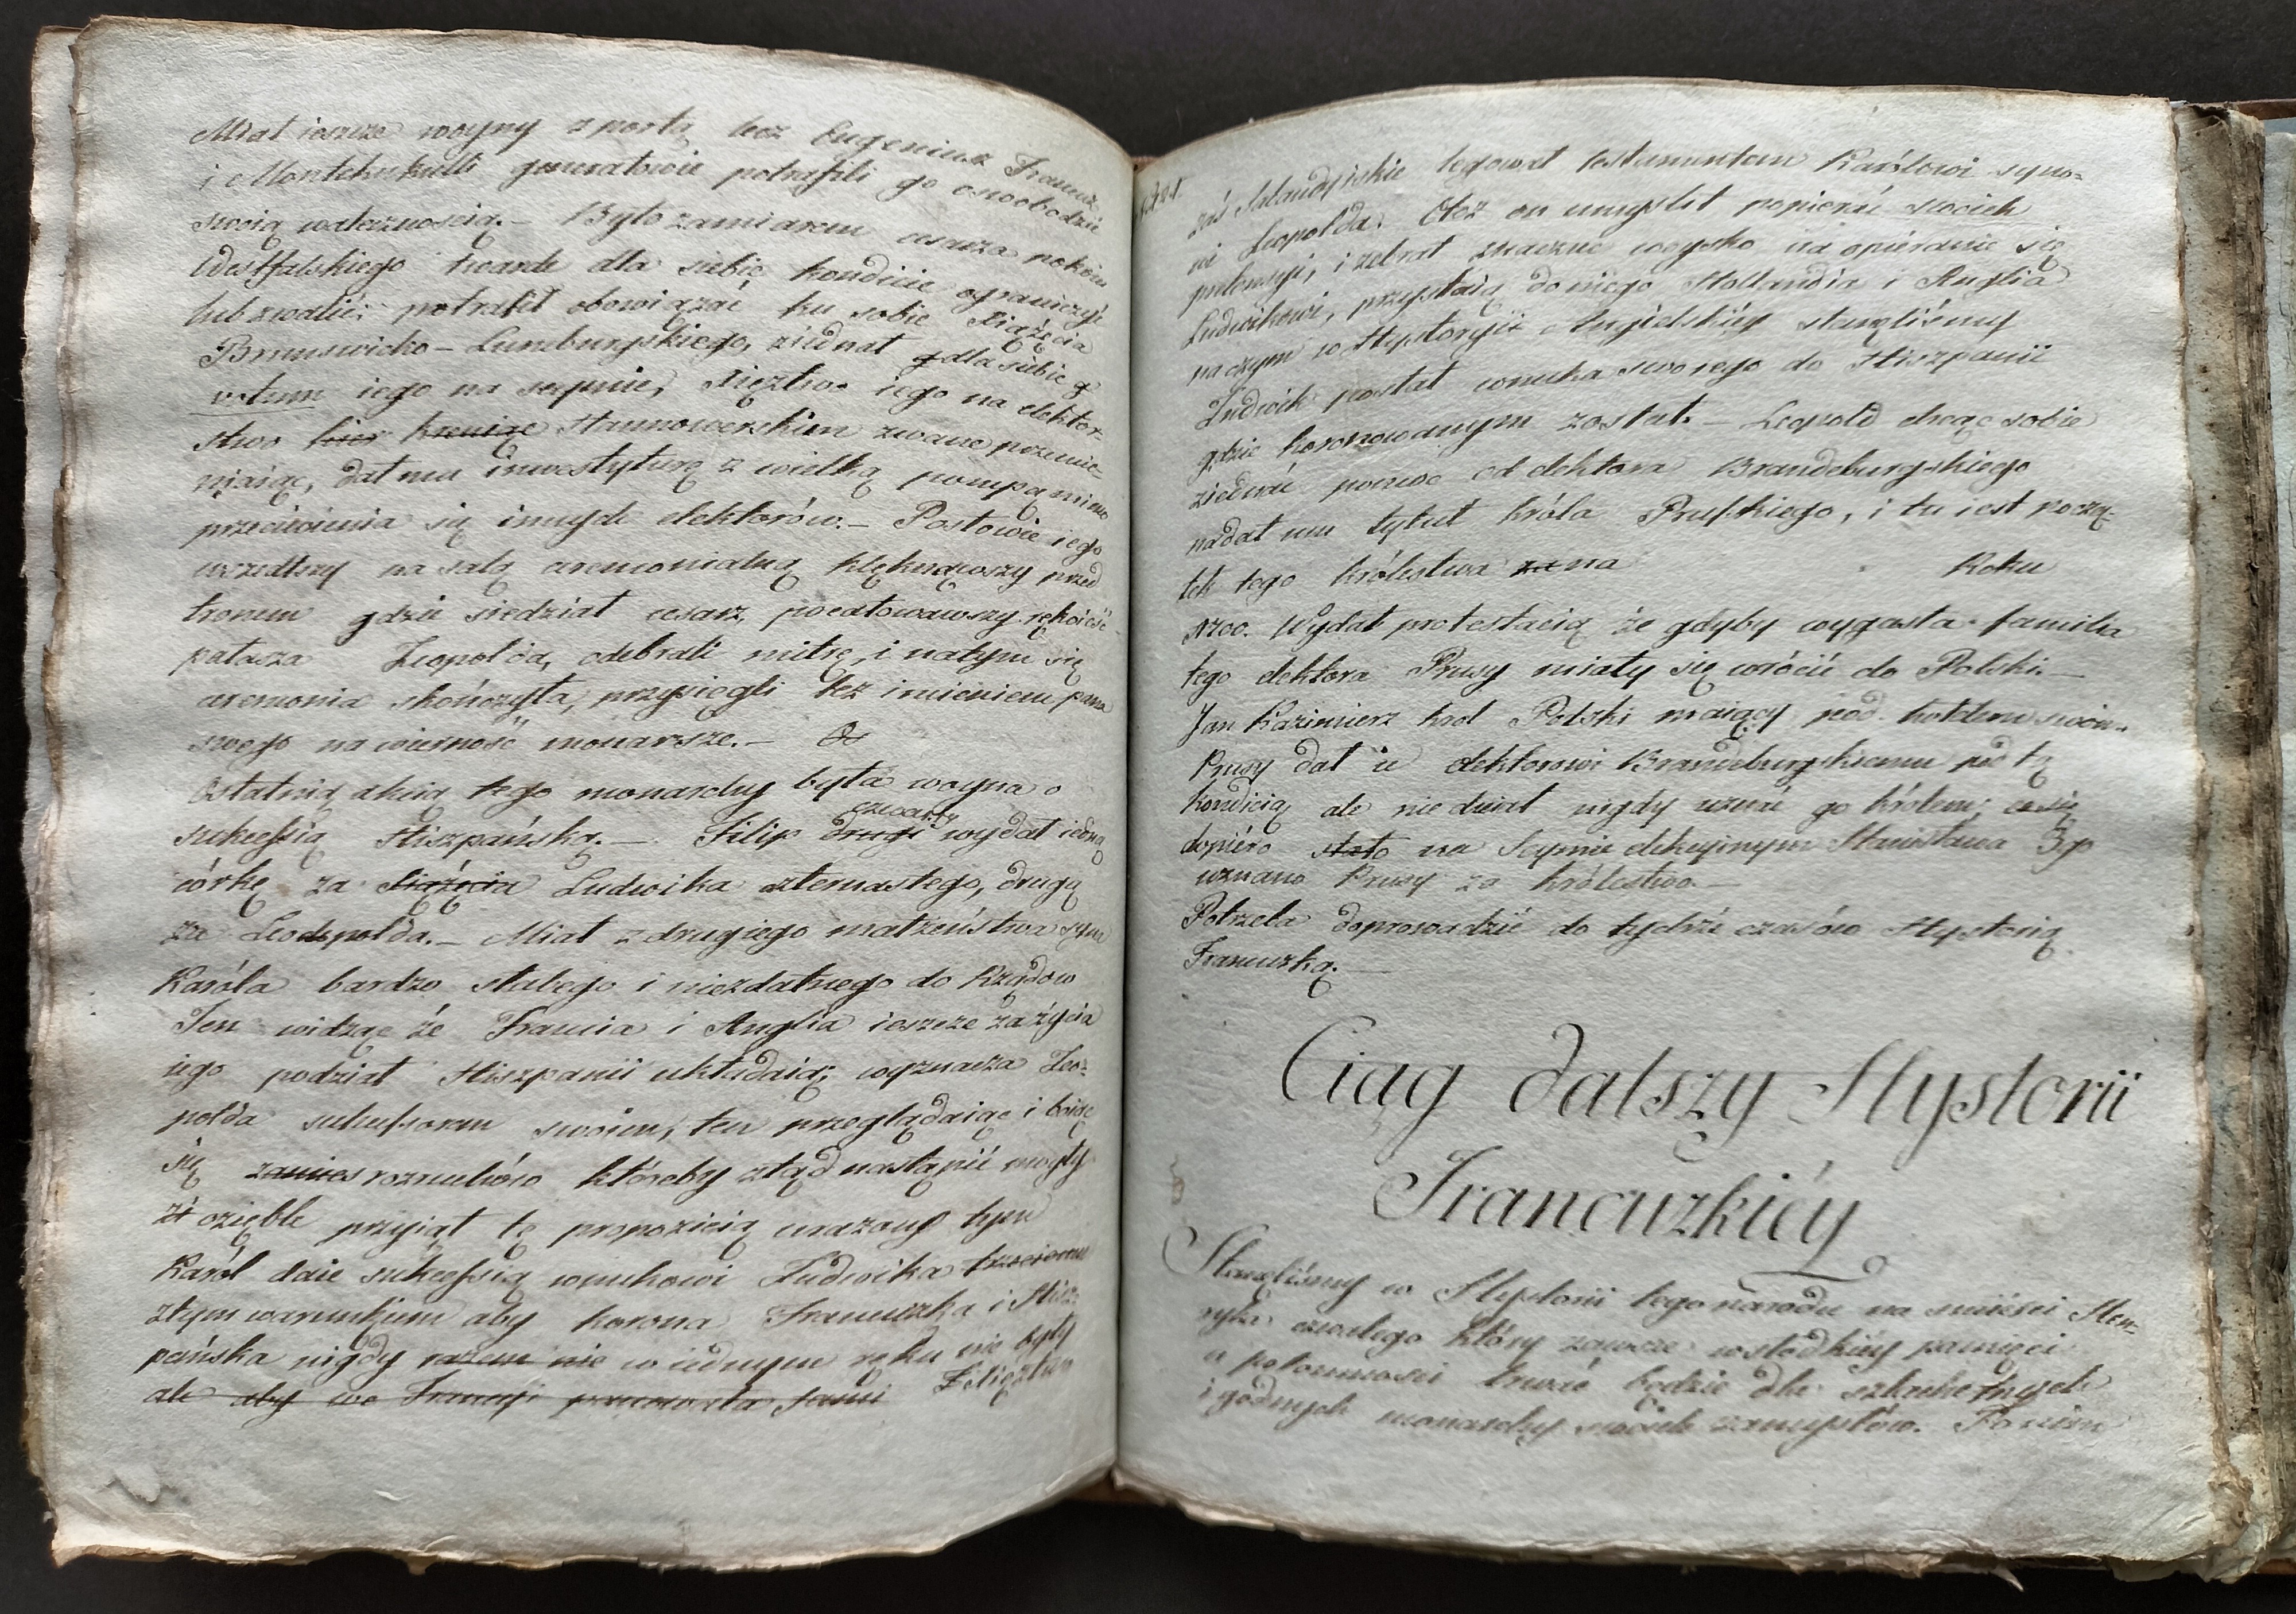 Miał ieszcze woyny z portą lecz Eugeniusz Francuz
i Montekukulli generałowie potrafili go oswobodzić
swoią walecznością.— Było zamiarem cesarza pokoiu
Westfalskiego twarde dla siebie kondicie ograniczyć
lub zwalić; potrafił obowiązać ku sobie Xiążęcia
Brunswicko-Luneburgskiego, ziednał dla siebie
votum iego na seymie, Xięztwo iego na elektor-
stwo Hannowerskim zwane przemie-
niaiąc, dał mu inwestyturę z wielką pompą mimo
przeciwienia się innych elektorów.— Posłowie iego
wszedłszy na salę ceremonialną klęknąwszy przed
tronem gdzie siedział cesarz, pocałowawszy rękoieść
pałasza Leopolda, odebrali mitrę, i natym się
ceremonia skończyła, przysięgli też imieniem pana
swego na wierność monarsze.—
Ostatnią akcią tego monarchy była woyna o
sukcessią Hiszpańską.— Filip drugi czwarty wydał iedną
córkę za Xiążęcia Ludwika czternastego, drugą
za Leodpolda.— Miał z drugiego małżeństwa syna
Karóla bardzo słabego i niezdatnego do Rządów
Ten widząc że Francia i Anglia ieszcze za życia
iego podział Hiszpanii układaią; wyznacza Leo-
polda sukcessorem swoim, ten przeglądaiąc i boiąc
się rozruchów któreby ztąd nastąpić mogły
ozięble przyiął tę propozicią urażony tym
Karól daie sukcessią wnukowi Ludwika trzeciemu
z tym warunkiem aby korona Francuzka i Hisz-
pańska nigdy razem nie w iednym ręku nie były
ale aby we Francyi panowała Xięztwa
zaś Holandskie legował testamentem Karólowi syno-
wi Leopolda. Otoż on umyślił popierać swoich
pretensyi, i zebrał znaczne woysko na opieranie się
Ludwikowi, przystaią do niego Hollandia i Anglia
na czym w Hystoryii Angielskiéy stanęliśmy
Ludwik posłał wnuka swoiego do Hiszpanii
gdzie koronowanym został.— Leopold chcąc sobie
ziednać pomoc od elektora Brandeburgskiego
nadał mu tytuł króla Pruskiego, i tu iest począ-
tek tego królestwa za na Roku
1700. Wydał protestacią że gdyby wygasła familia
tego elektora Prusy miały się wrócić do Polski.—
Jan Kazimierz król Polski maiący pod hołdem swoim
Prusy dał ie elektorowi Brandeburgskiemu pod tą
kondicią ale nie chciał nigdy uznać go królem; co się
dopiéro stało na Seymie elekcyinym Stanisława 3go
uznano Prusy za królestwo.—
Potrzeba doprowadzić do tychże czasów Hystorią
Francuzką.—
Ciąg dalszy Hystorii
Francuzkiéy
Stanęliśmy w Hystorii tego narodu na śmierci Hen-
ryka czwartego który zawsze w słodkiéy pamięci
u potomności trwać będzie dla szlachetnych
i godnych monarchy swoich zamysłów. Po nim